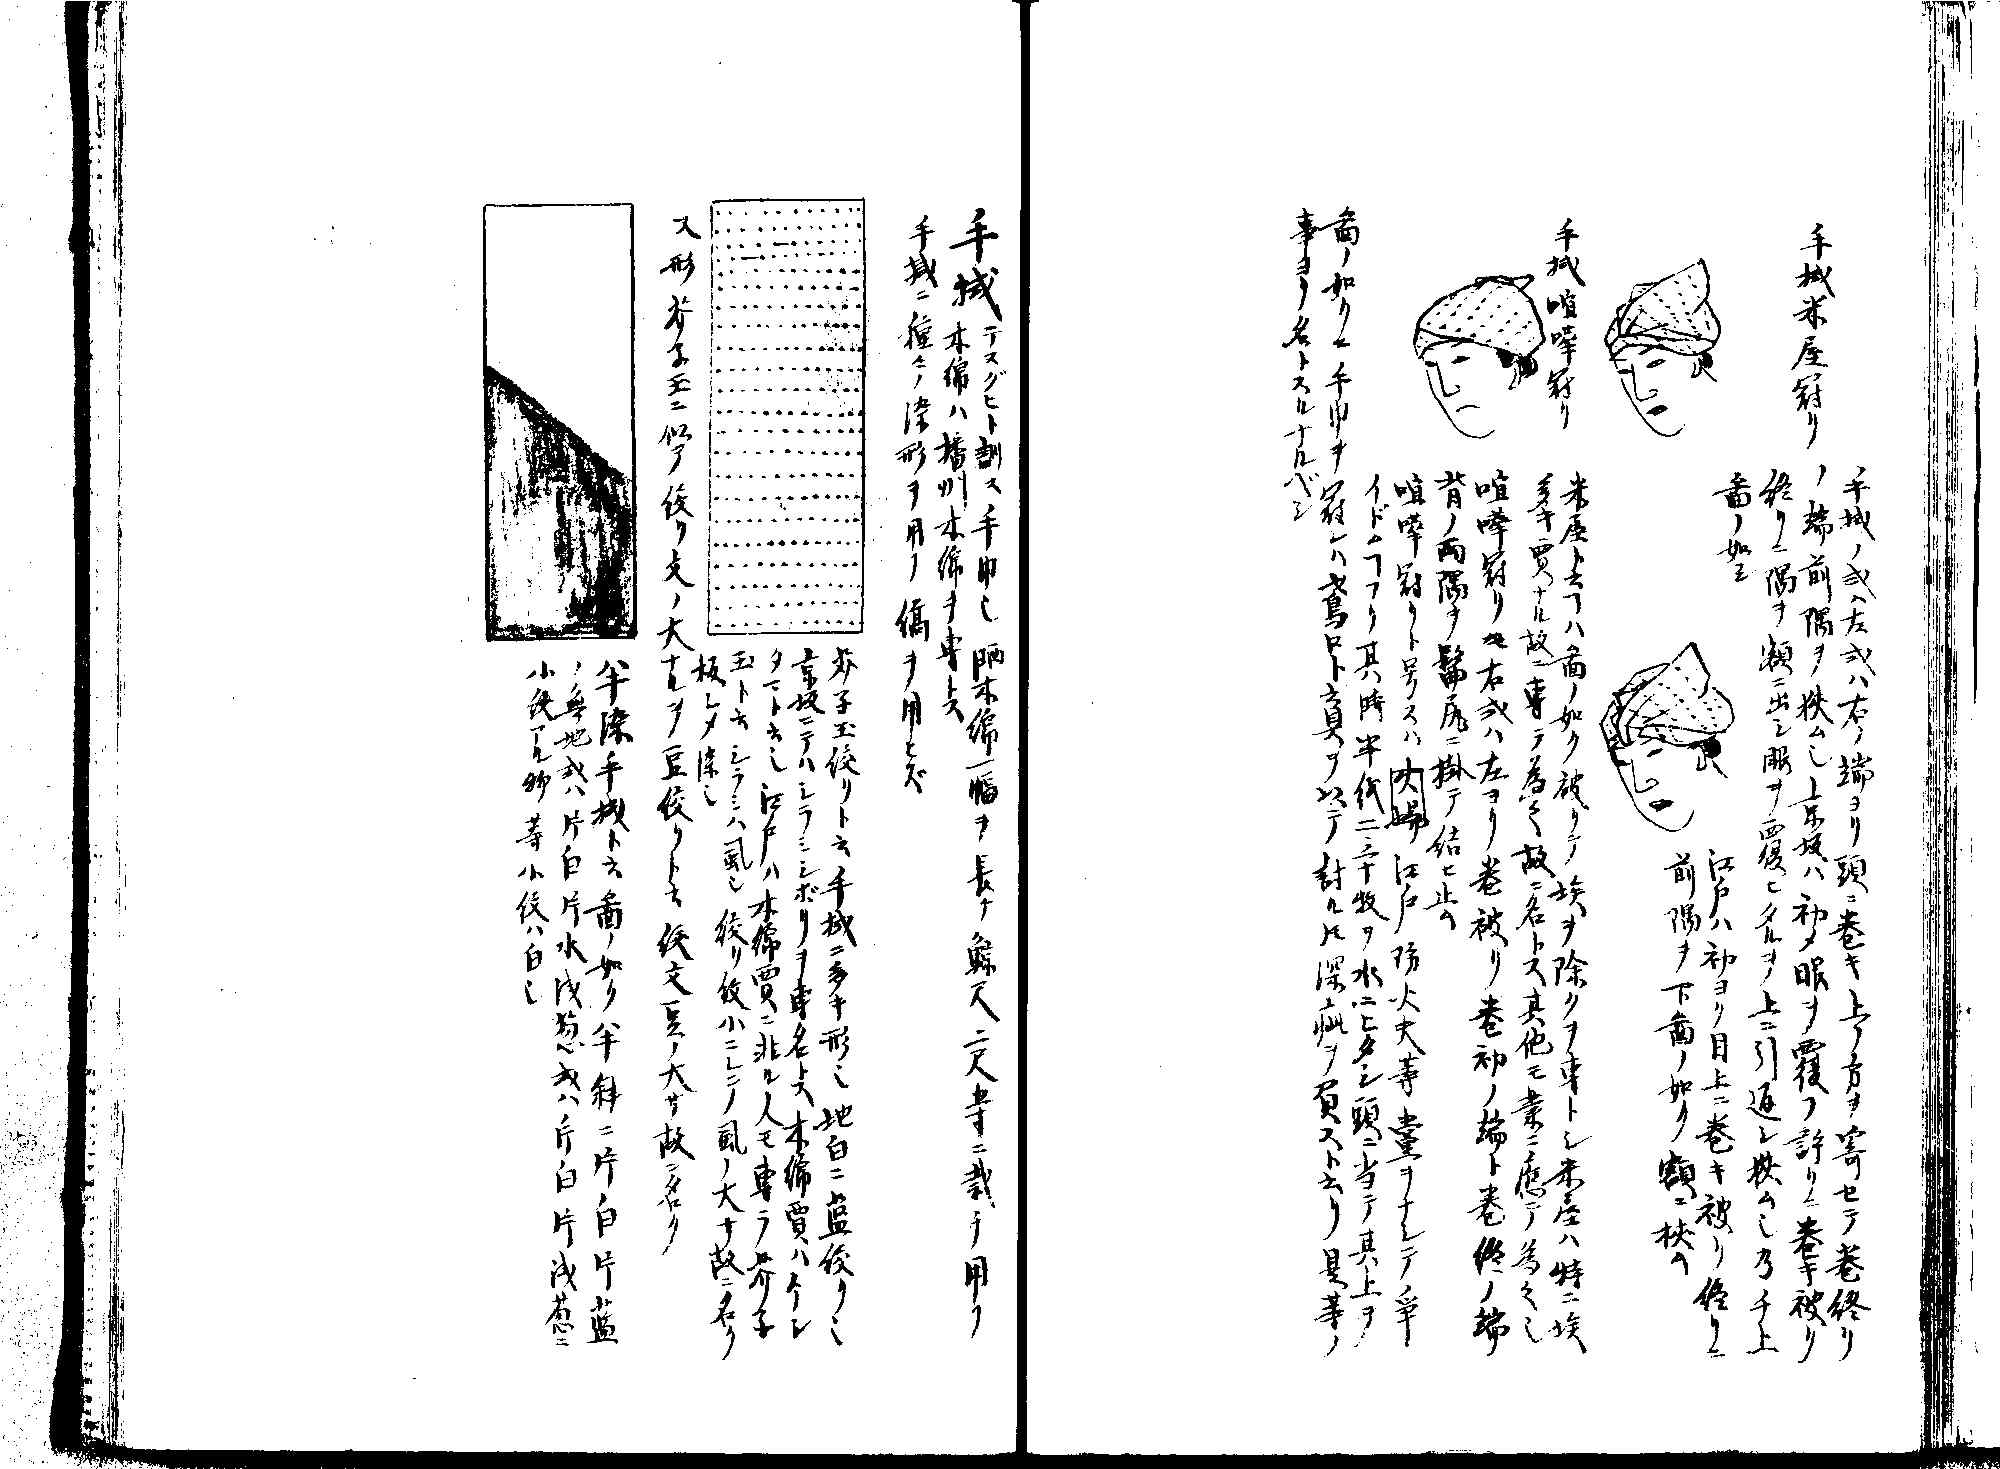 手拭米屋冠リ
手拭ノ或ハ左或ハ右ノ端ヨリ頭ニ巻キ上ノ方ヲ寄セテ巻終リ
ノ端前隅ヲ狭ム也京坂ハ初メ眼ヲ覆フ許リニ巻キ被リ
終リニ隅ヲ額ニ出シ眼ヲ覆ヒタルヲ上ニ引返シ狭ム也乃チ上
図ノ如シ
江戸ハ初ヨリ目上ニ巻キ被リ終リニ
前隅ヲ下図ノ如ク額ニ狭ム
米屋ト云フハ図ノ如ク被リテ埃ヲ除クヲ専トシ米屋ハ特ニ埃
多キ賈ナル故ニ専ラ為之故ニ名トス其他モ業ニ応テ為之也
手拭喧嘩冠リ
喧嘩冠リモ右或ハ左ヨリ巻被リ巻初ノ端ト巻終ノ端
背ノ両隅ヲ髷尻ニ掛テ結ヒ止ム
喧嘩冠リト号スハ江戸防火夫等党ヲナシテ争
イドムコアリ其時半紙二三十枚ヲ水ニヒタシ頭ニ当テ其上ヲ
図ノ如クニ手巾ヲ冠レハ鳶口ト云具ヲ以テ討ルモ深疵ヲ負ズト云リ是等ノ
事ヨリ名トスルナルベシ
手拭テヌグヒト訓ス手巾也晒木綿一幅ヲ長ケ鯨尺二尺五寸ニ裁チ用フ
木綿ハ播州木綿ヲ専トス
手拭ニ種々ノ染形ヲ用フ縞ヲ用ヒズ
芥子玉絞リト云手拭ニ多キ形也地白ニ藍絞リ也
京坂ニテハシラミシボリヲ専名トス木綿賈ハケシ
タマト云也江戸ハ木綿賈ニ非ル人モ専ラ芥子
玉ト云シラミハ虱也絞リ紋小ニシテ虱ノ大サ故ニ名ク
板シメ染也
又形芥子玉ニ似テ絞リ文ノ大ナルヲ豆絞リト云絞文豆ノ大サ故ニ名ク
半染手拭ト云図ノ如ク半斜ニ片白片藍
ノ無地或ハ片白片水浅葱或ハ片白片浅葱ニ
小紋アル等小紋ハ白也